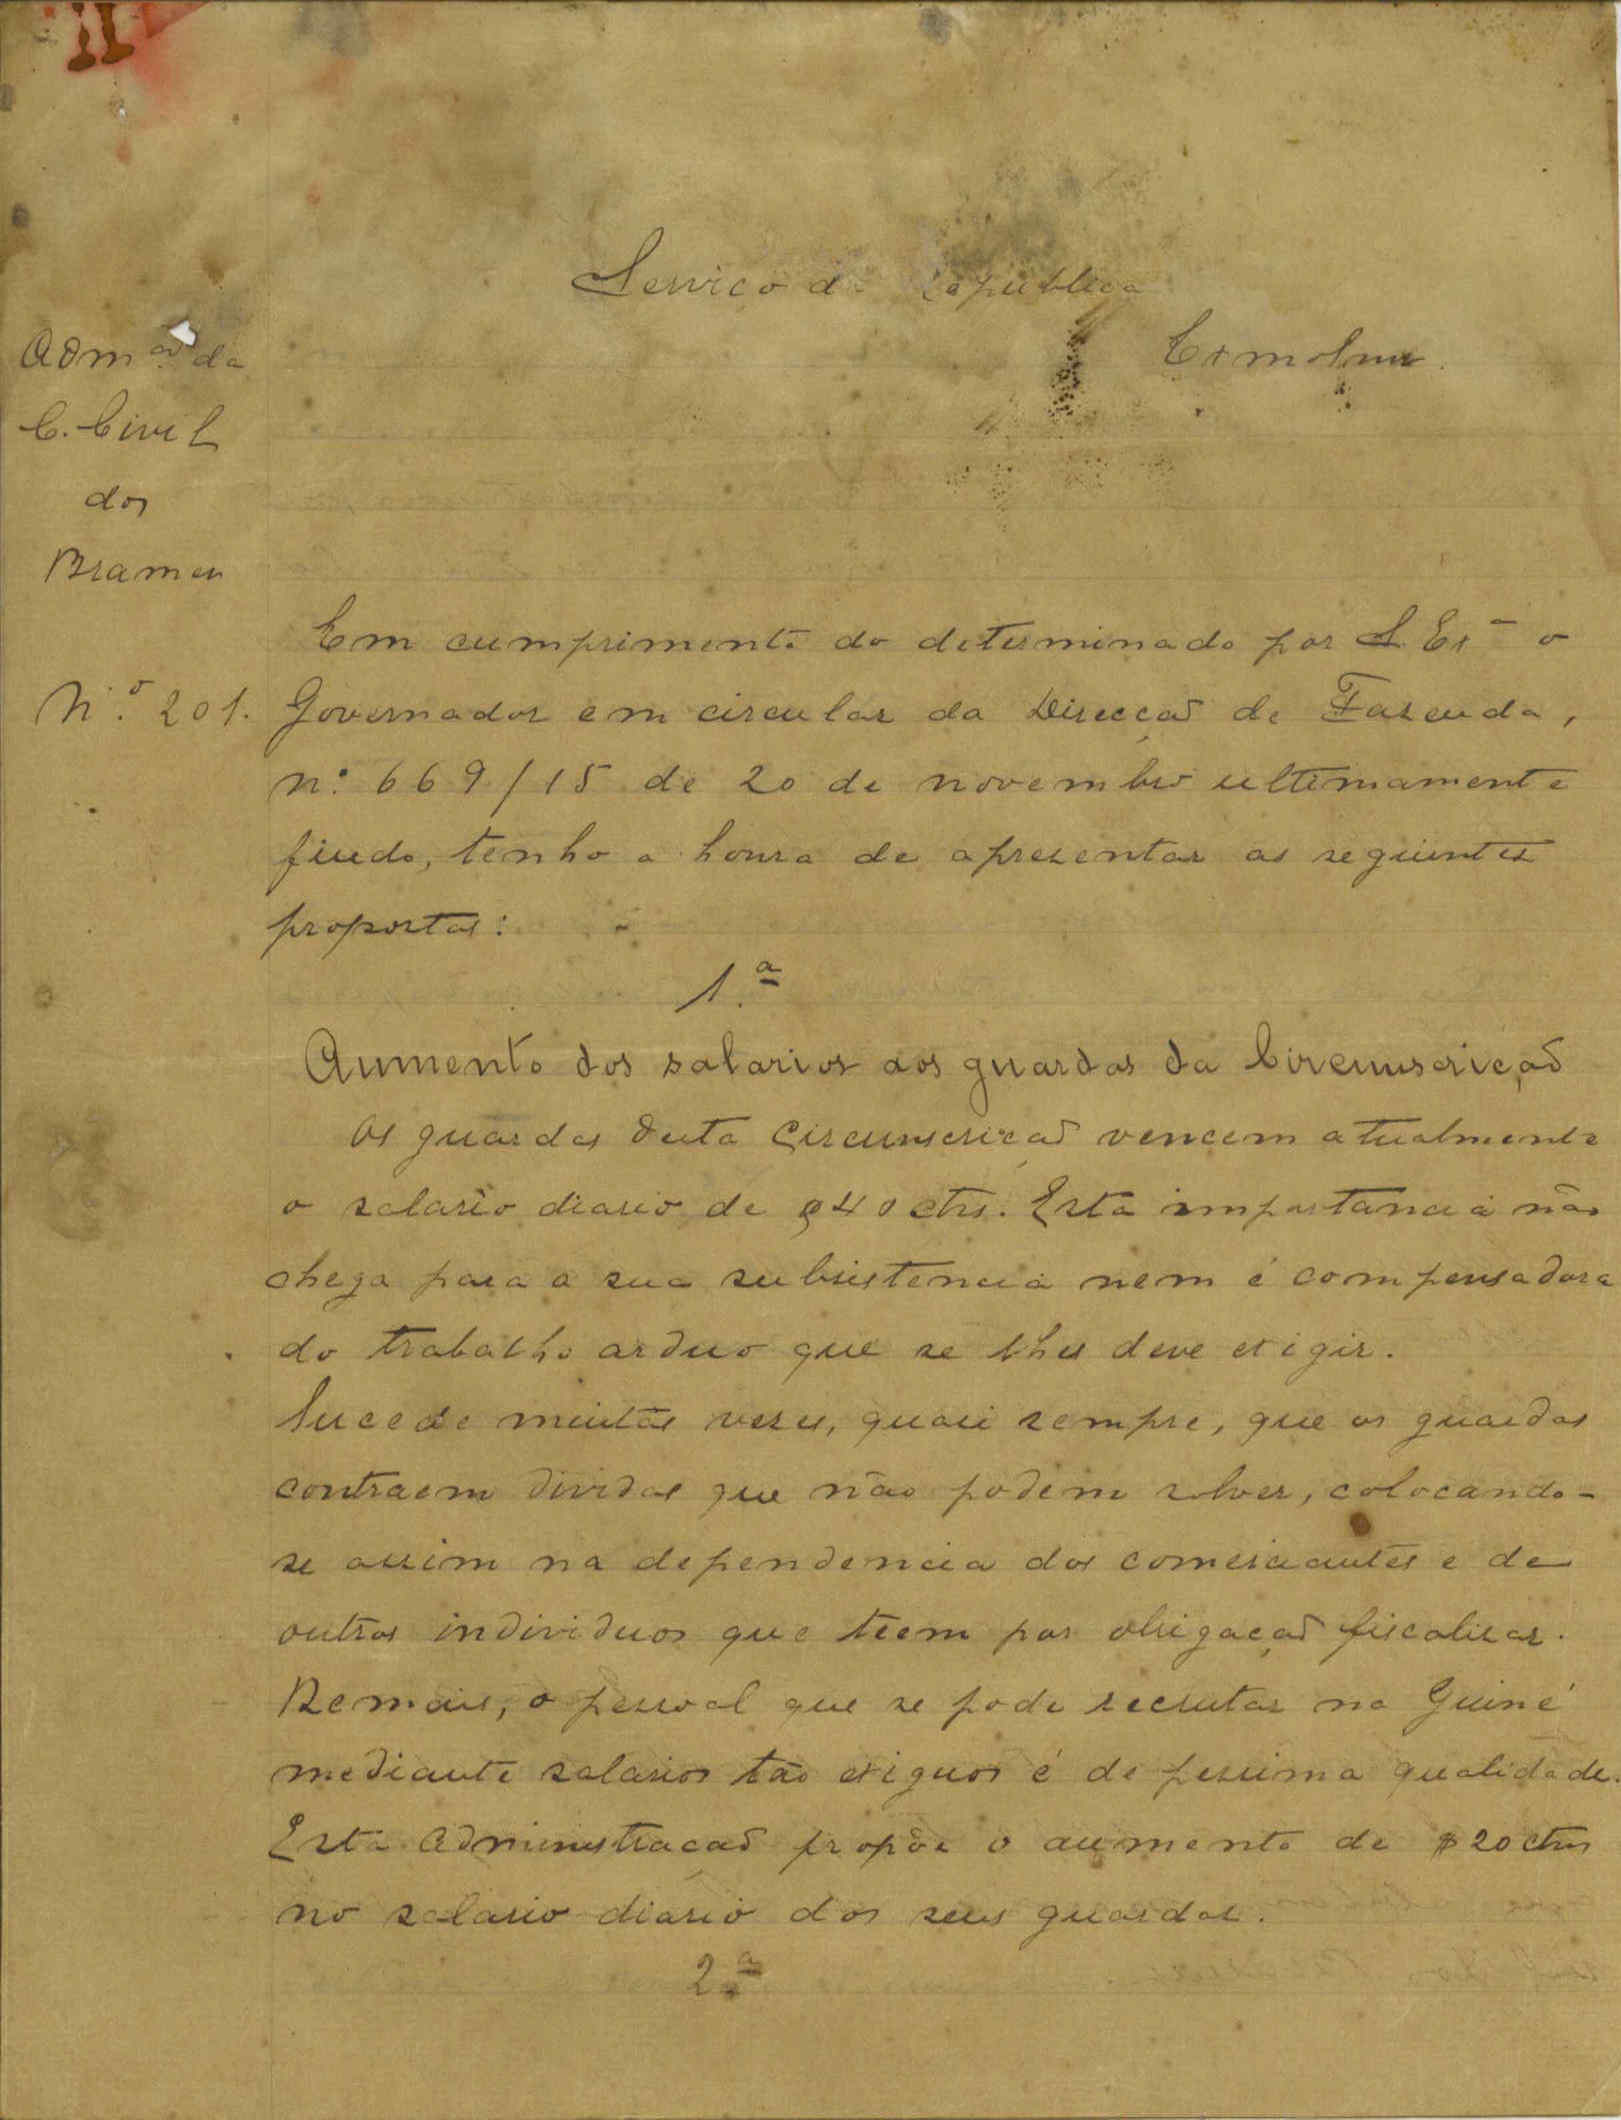 II
Serviço da Republica
Admão da
C. Civil
dos
Brames
Exmo Snr.
Em cumprimento do determinado por S. Exa o
Nº. 201.
Governador em circular da Direcção de Fazenda,
nº 669/15 de 20 de novembro ultimamente
findo, tenho a honra de apresentar as seguintes
propostas:
1.ª
Aumento dos salarios aos guardas da Circumscrição
Os guardas desta Circumscrição vencem atualmente
o salario diario de $40 ctvs. Esta importancia não
chega para a sua subsistencia nem é compensadora
do trabalho arduo que se lhes deve exigir.
Sucede muitas vezes, quasi sempre, que os guardas
contraem dividas que não podem solver, colocando-
se assim na dependencia dos comerciantes e de
outros individuos que teem por obrigação fiscalizar.
Demais, o pessoal que se pode recrutar na Guiné
mediante salarios tão exiguos é de pessima qualidade.
Esta Administração propõe o aumento de $20 ctvs
no salario diario dos seus guardas.
2.ª